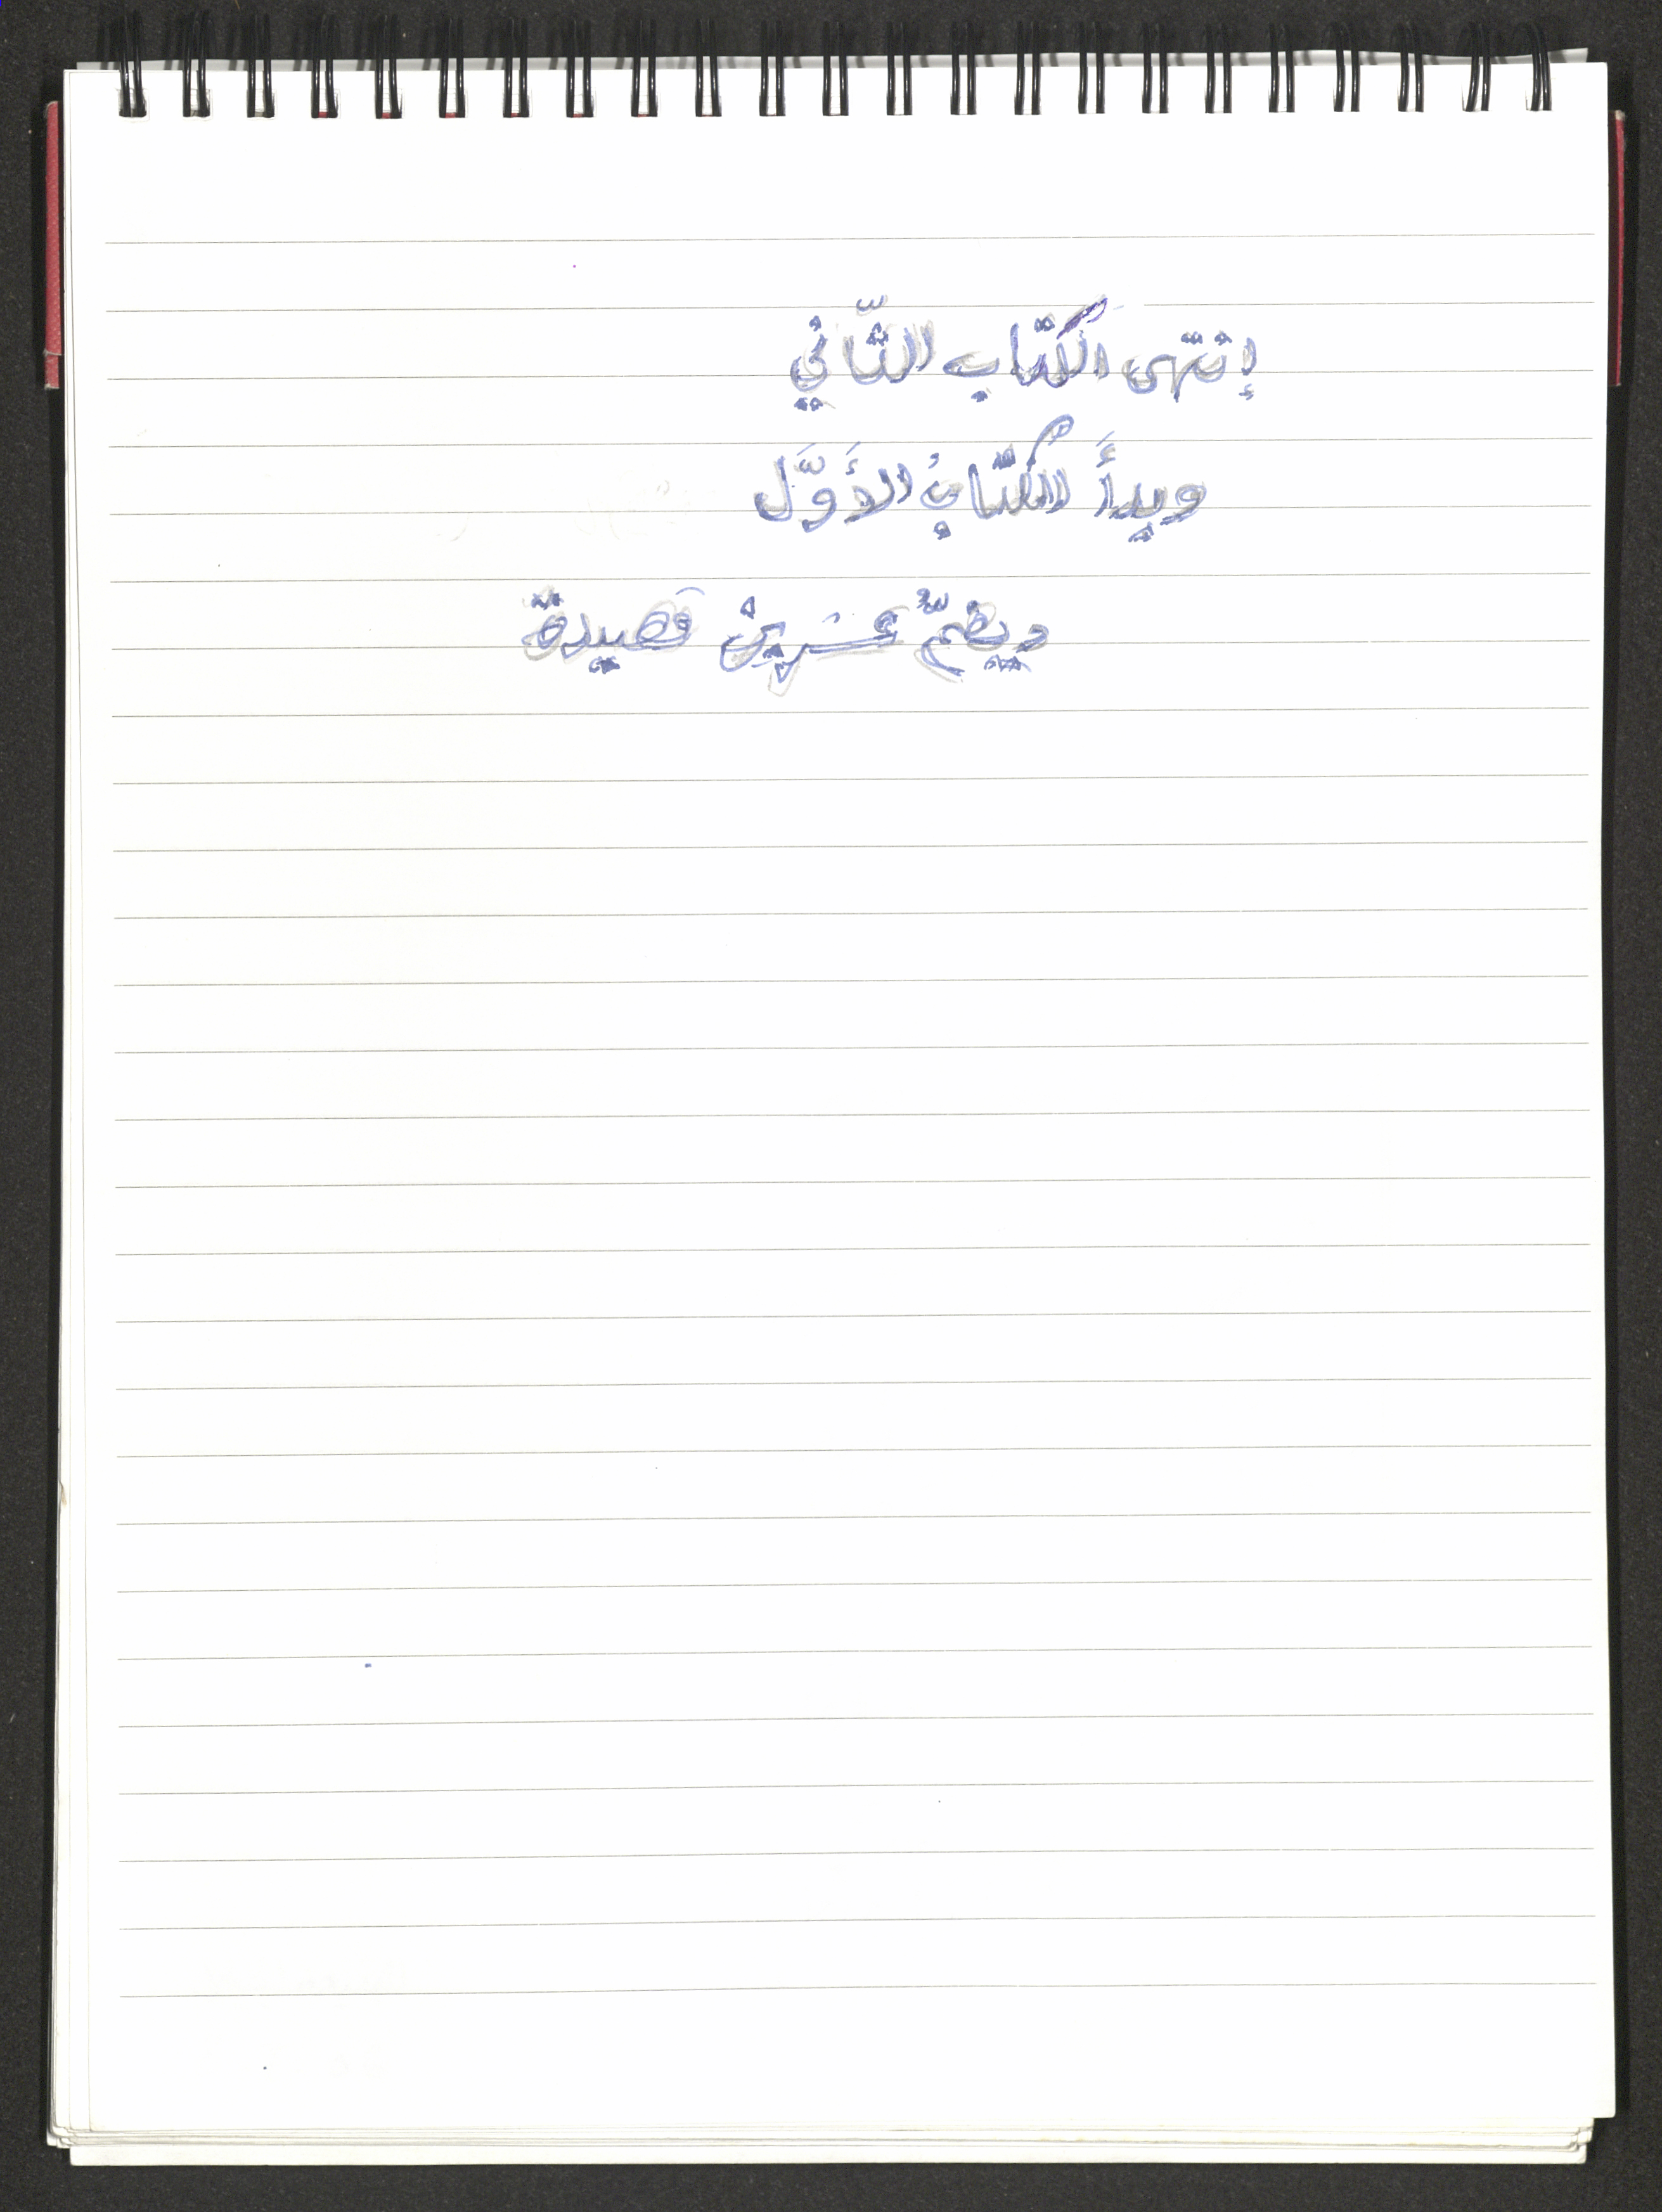 إنتهى الكتاب الثّاني
وبدأَ الكتابُ الأَوَّل
ويضمّ عشرين قصيدة